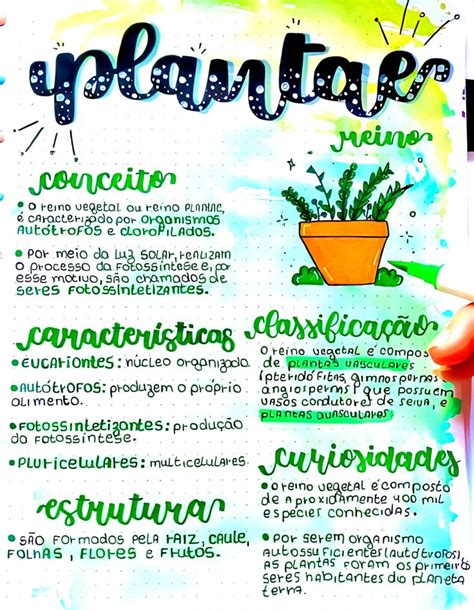 plantae
reino
conceito
• O reino vegetal ou reino PLANTAE,
é caracterizado por ORGANISMOS
AUTÓTROFOS e CLOROFILADOS.
• POR meio da LUZ SOLAR, realizam
o processo da fotossíntese e, por
esse motivo, são chamados de
seres fotossintetizantes.
características
• EUCARIONTES: núcleo organizado.
• AUTÓTROFOS: produzem o próprio
alimento.
• FOTOSSINTETIZANTES: produção
da fotossíntese.
• PLURICELULARES: multicelulares.
estrutura
• SÃO formados pela RAIZ, CAULE,
FOLHAS, FLORES e FRUTOS.
classificação
O reino vegetal é compos
de PLANTAS VASCULARES
(pteridófitas, gimnospermas
angiospermas) que possuem
vasos condutores de seiva, e
PLANTAS AVASCULARES
curiosidades
• O reino vegetal é composto
de aproximadamente 400 mil
espécies conhecidas.
• Por serem organismo
autossuficientes (autótrofos),
as plantas foram os primeiros
seres habitantes do planeta
terra.